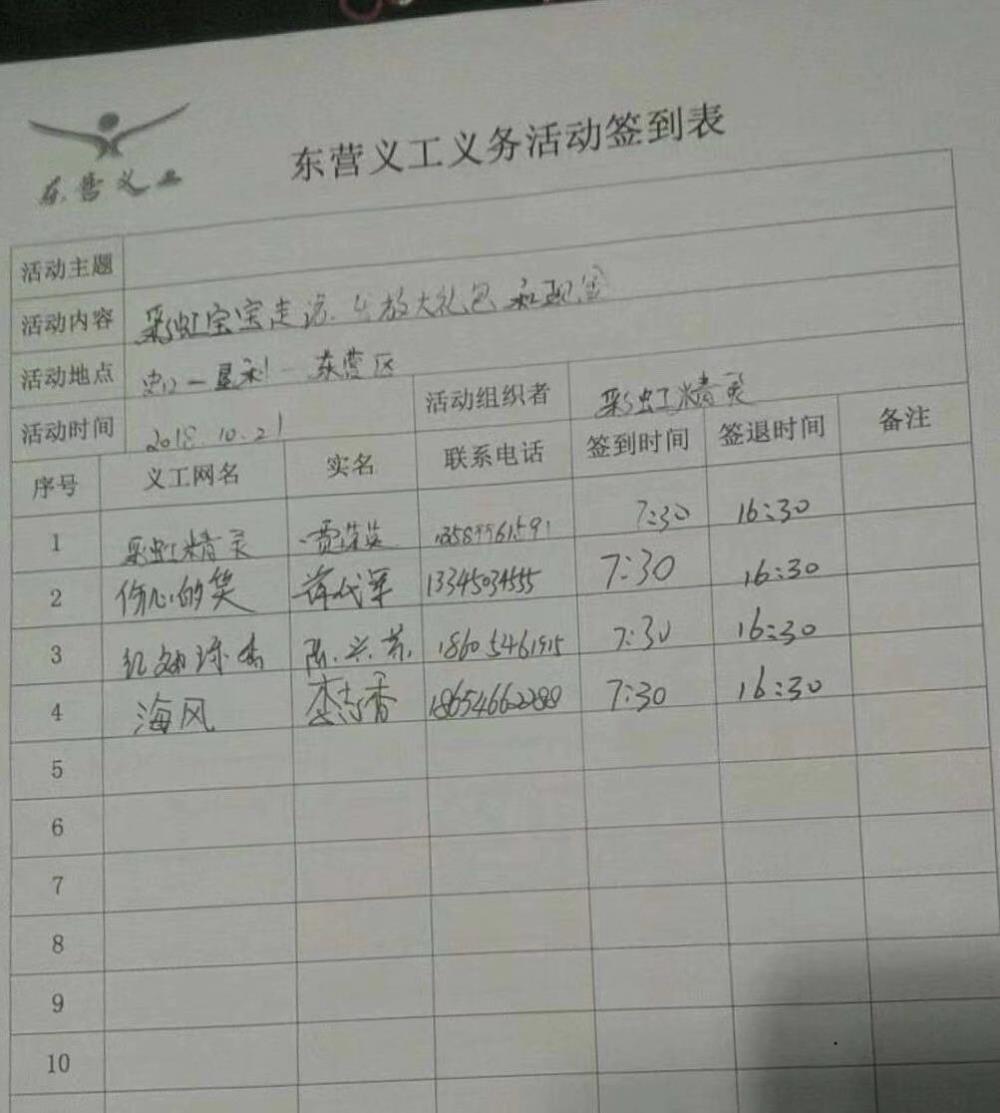 东营义工
东营义工义务活动签到表
活动主题
活动内容 彩虹宝宝走访、发放大礼包和现金
活动地点 垦利 一 东营区
活动时间 2018.10.21 活动组织者 彩虹精灵
序号 义工网名 实名 联系电话 签到时间 签退时间 备注
1 彩虹精灵 7:30 16:30
2 伤心的笑 13345034555 7:30 16:30
3 18605461515 7:30 16:30
4 海风 李志香 18654662288 7:30 16:30
5
6
7
8
9
10